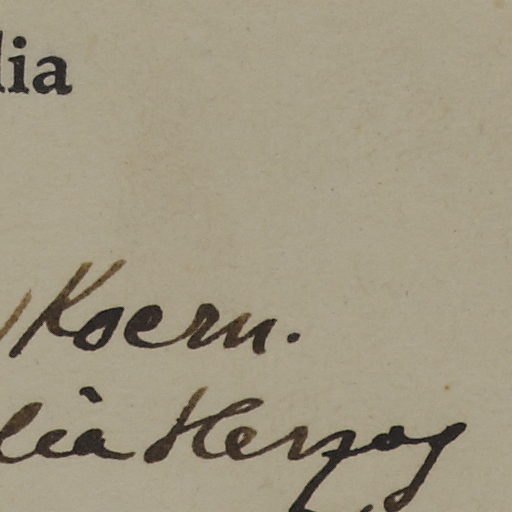 lia
Koern.
lia Herzog